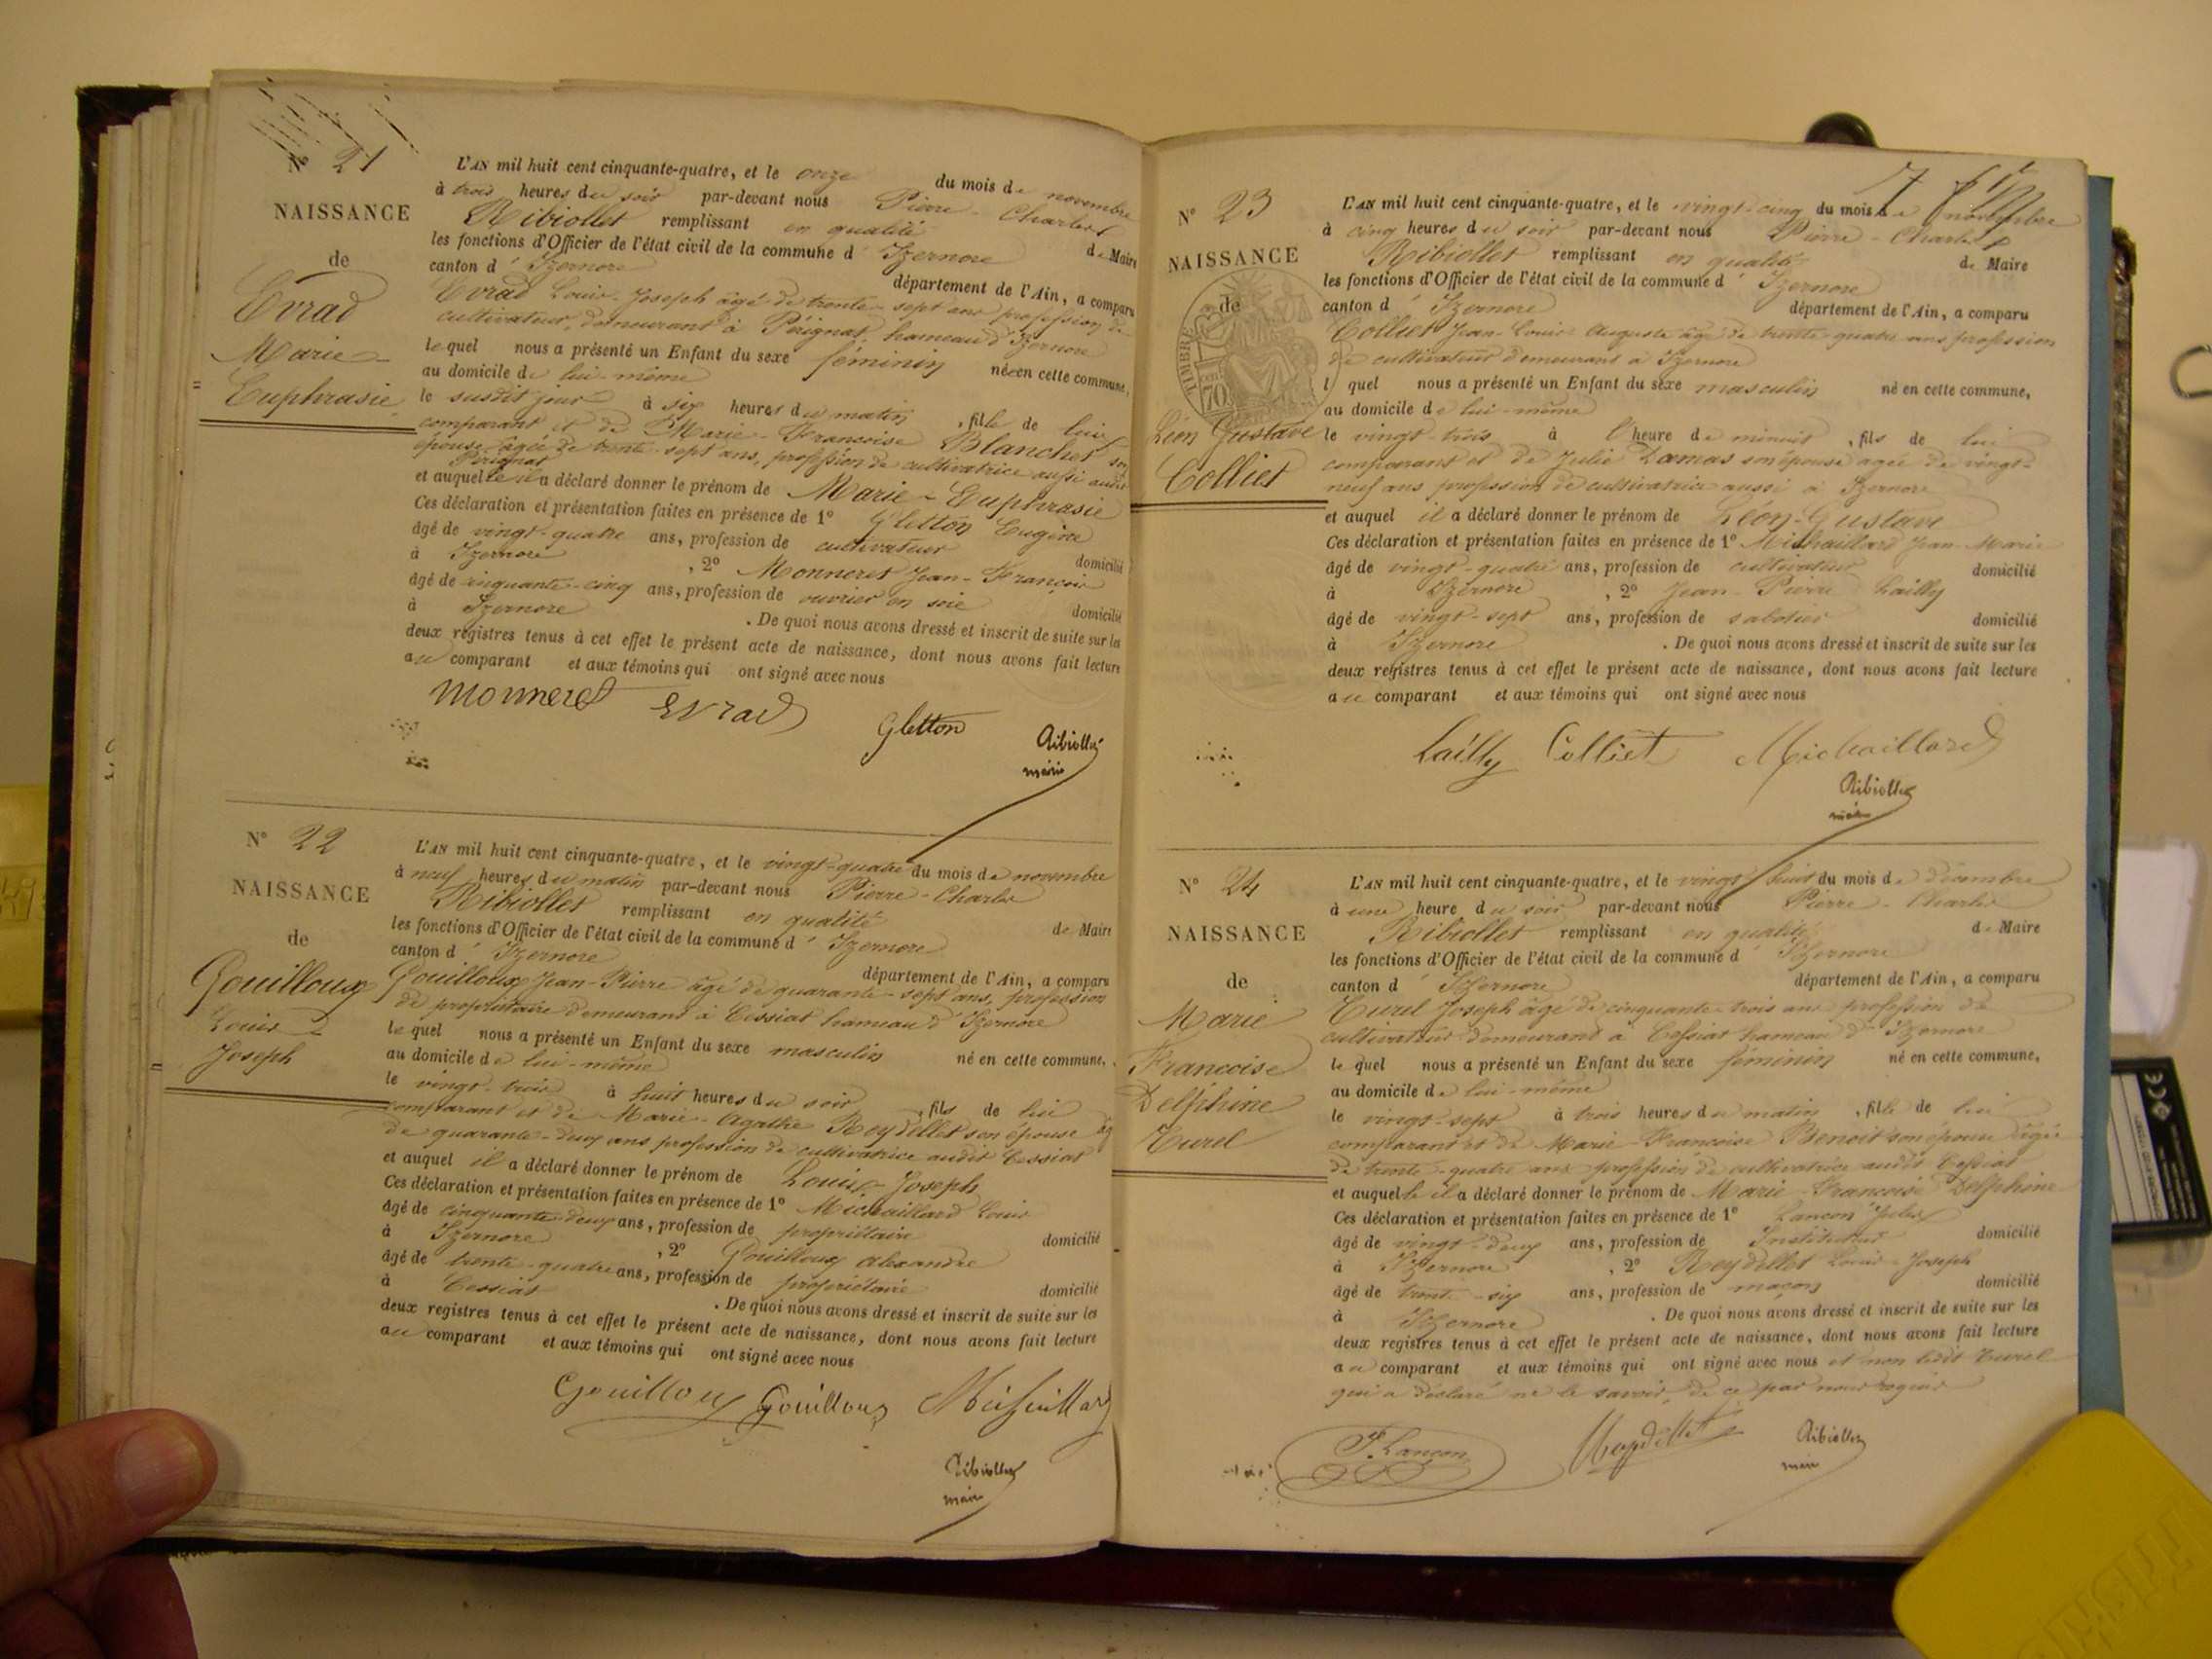 N° 21
NAISSANCE
de
Evrad
Marie
Euphrasie
L'AN mil huit cent cinquante-quatre, et le onze du mois de novembre
à trois heures du soir par-devant nous Pierre-Charles
Ribiollet remplissant en qualité de Maire
les fonctions d'Officier de l'état civil de la commune d'Izernore
canton d'Izernore département de l'Ain, a comparu
Evrad Louis-Joseph âgé de trente-sept ans profession de
cultivateur, demeurant à Pérignat, hameau d'Izernore
lequel nous a présenté un Enfant du sexe féminin née en cette commune,
au domicile de lui-même
le susdit jour à six heures du matin, fille de lui
comparant et de Marie-Françoise Blanchet son
épouse âgée de trente-sept ans, profession de cultivatrice aussi audit
Pérignat
et auquel le il a déclaré donner le prénom de Marie-Euphrasie
Ces déclaration et présentation faites en présence de 1° Gletton Eugène
âgé de vingt-quatre ans, profession de cultivateur domicilié
à Izernore, 2° Monneret Jean-François
âgé de cinquante-cinq ans, profession de ouvrier en soie domicilié
à Izernore. De quoi nous avons dressé et inscrit de suite sur les
deux registres tenus à cet effet le présent acte de naissance, dont nous avons fait lecture
au comparant et aux témoins qui ont signé avec nous
Monneret Evrad Gletton Ribiollet
maire
N° 22
NAISSANCE
de
Gouilloux
Louis
Joseph
L'AN mil huit cent cinquante-quatre, et le vingt-quatre du mois de novembre
à neuf heures du matin par-devant nous Pierre-Charles
Ribiollet remplissant en qualité de Maire
les fonctions d'Officier de l'état civil de la commune d'Izernore
canton d'Izernore département de l'Ain, a comparu
Gouilloux Jean-Pierre âgé de quarante-sept ans, profession
de propriétaire demeurant à Cessiat hameau d'Izernore
lequel nous a présenté un Enfant du sexe masculin né en cette commune,
au domicile de lui-même
le vingt-trois à huit heures du soir, fils de lui
comparant et de Marie-Agathe Reydellet son épouse âg
de quarante-deux ans profession de cultivatrice audit Cessiat
et auquel il a déclaré donner le prénom de Louis-Joseph
Ces déclaration et présentation faites en présence de 1° Michaillard Louis
âgé de cinquante-deux ans, profession de propriétaire domicilié
à Izernore, 2° Gouilloux Alexandre
âgé de trente-quatre ans, profession de propriétaire domicilié
à Cessiat. De quoi nous avons dressé et inscrit de suite sur les
deux registres tenus à cet effet le présent acte de naissance, dont nous avons fait lecture
au comparant et aux témoins qui ont signé avec nous
Gouilloux Gouilloux Michaillard
Ribiollet
maire
7
N° 23
NAISSANCE
de
TIMBRE
70
Léon Gustave
Colliet
L'AN mil huit cent cinquante-quatre, et le vingt-cinq du mois de novembre
à cinq heures du soir par-devant nous Pierre-Charles
Ribiollet remplissant en qualité de Maire
les fonctions d'Officier de l'état civil de la commune d'Izernore
canton d'Izernore département de l'Ain, a comparu
Colliet Jean-Louis Auguste âgé de trente-quatre ans profession
de cultivateur demeurant à Izernore
l quel nous a présenté un Enfant du sexe masculin né en cette commune,
au domicile de lui-même
le vingt-trois à l'heure de minuit, fils de lui
comparant et de Julie Lamas son épouse âgée de vingt-
neuf ans profession de cultivatrice aussi à Izernore
et auquel il a déclaré donner le prénom de Léon-Gustave
Ces déclaration et présentation faites en présence de 1° Michaillard Jean-Marie
âgé de vingt-quatre ans, profession de cultivateur domicilié
à Izernore, 2° Jean-Pierre Lailly
âgé de vingt-sept ans, profession de sabotier domicilié
à Izernore. De quoi nous avons dressé et inscrit de suite sur les
deux registres tenus à cet effet le présent acte de naissance, dont nous avons fait lecture
au comparant et aux témoins qui ont signé avec nous
Lailly Colliet Michaillard
Ribiollet
maire
N° 24
NAISSANCE
de
Marie
Françoise
Delphine
Turel
L'AN mil huit cent cinquante-quatre, et le vingt huit du mois de décembre
à une heure du soir par-devant nous Pierre-Charles
Ribiollet remplissant en qualité de Maire
les fonctions d'Officier de l'état civil de la commune d'Izernore
canton d'Izernore département de l'Ain, a comparu
Turel Joseph âgé de cinquante-trois ans profession de
cultivateur demeurant à Cessiat hameau d'Izernore
le quel nous a présenté un Enfant du sexe féminin né en cette commune,
au domicile de lui-même
le vingt-sept à trois heures du matin, fille de lui
comparant et de Marie-Françoise Benoit son épouse âgée
de trente-quatre ans profession de cultivatrice audit Cessiat
et auquel le il a déclaré donner le prénom de Marie-Françoise Delphine
Ces déclaration et présentation faites en présence de 1° Lançon Jules
âgé de vingt-deux ans, profession de Instituteur domicilié
à Izernore, 2° Reydellet Louis-Joseph
âgé de trente-six ans, profession de maçon domicilié
à Izernore. De quoi nous avons dressé et inscrit de suite sur les
deux registres tenus à cet effet le présent acte de naissance, dont nous avons fait lecture
au comparant et aux témoins qui ont signé avec nous et non ledit Turel
qui a déclaré ne le savoir, de ce par nous requis
J. Lançon Reydellet Ribiollet
maire